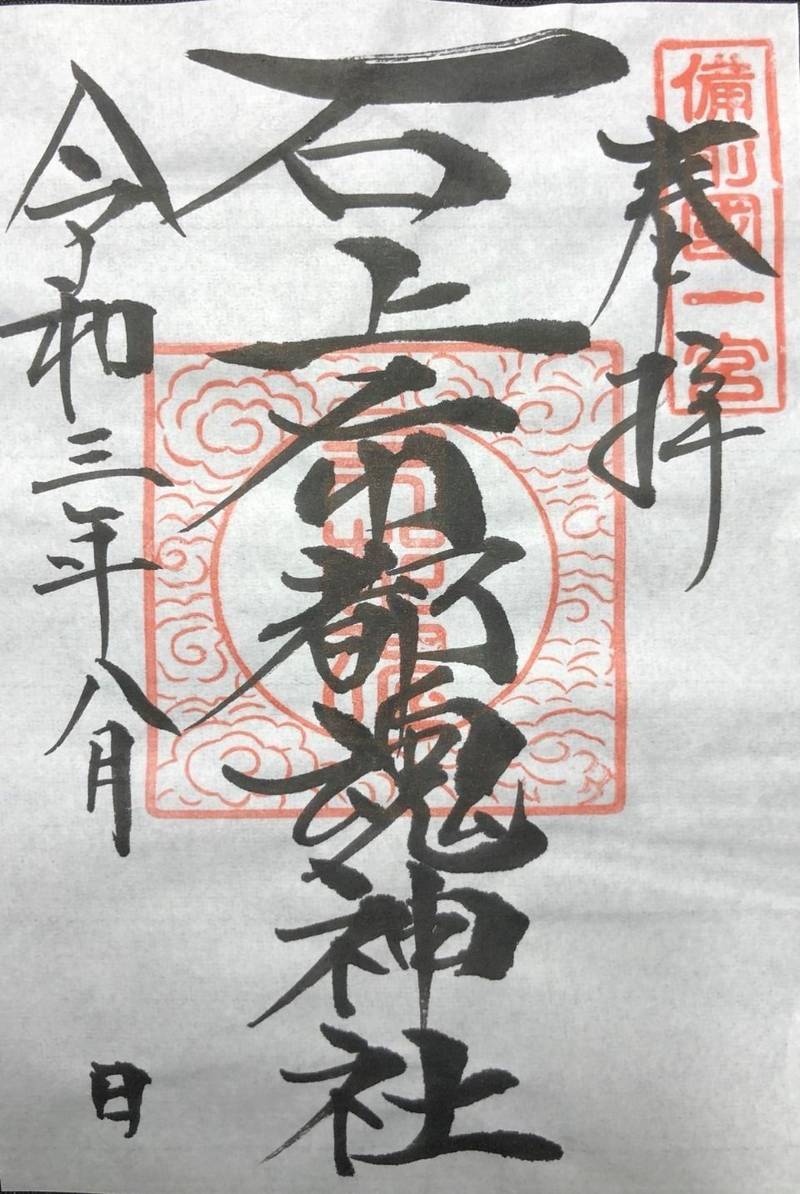 備前國一宮
奉拝
石上布都魂神社
令和三年八月 日